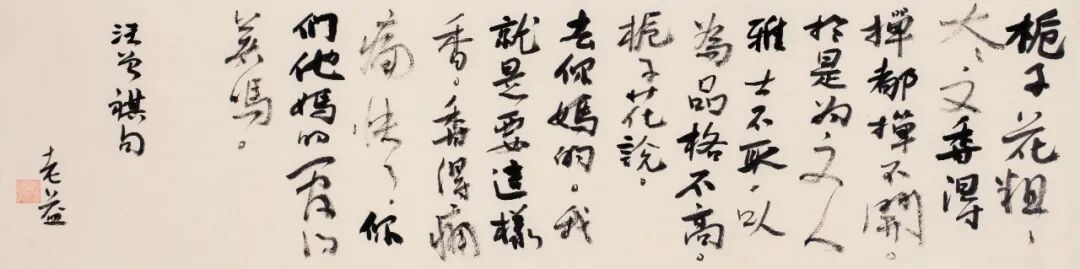 梔子花粗々
大々又香得
撣都撣不開。
於是为文人
雅士不取，以
為品格不高。
梔子花說。
去你媽的。我
就是要這樣
香。香得痛
痛快々，你
們他媽的管得
着嗎。
汪曾祺句
老益